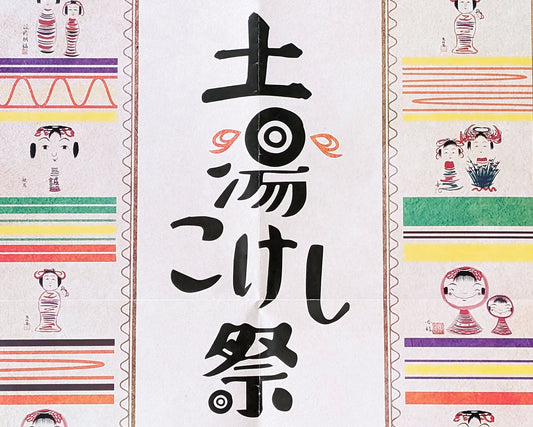 土
湯
こけし
祭